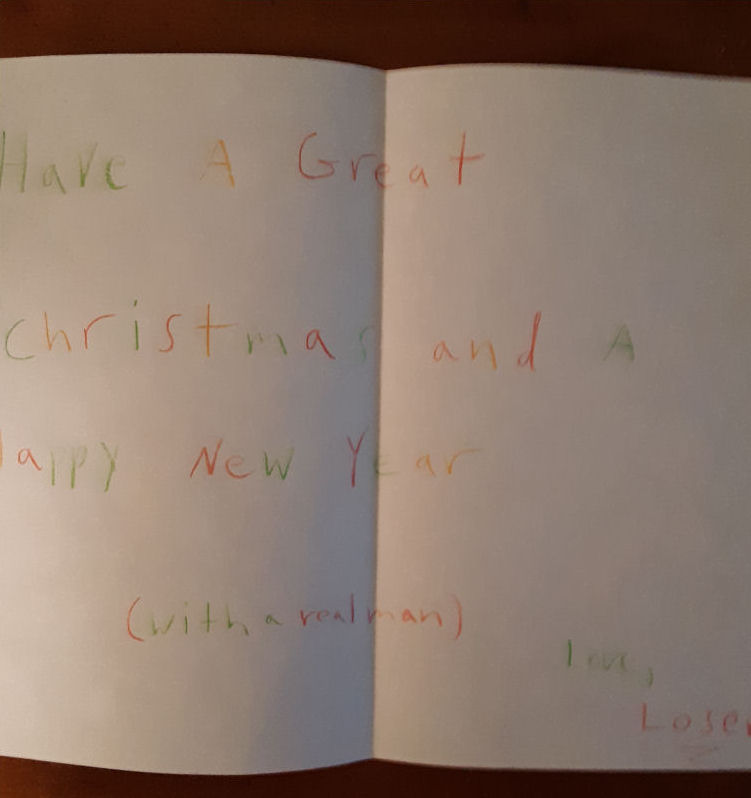 Have A Great
christmas and A
Happy New Year
(with a real man)
Love,
Loser